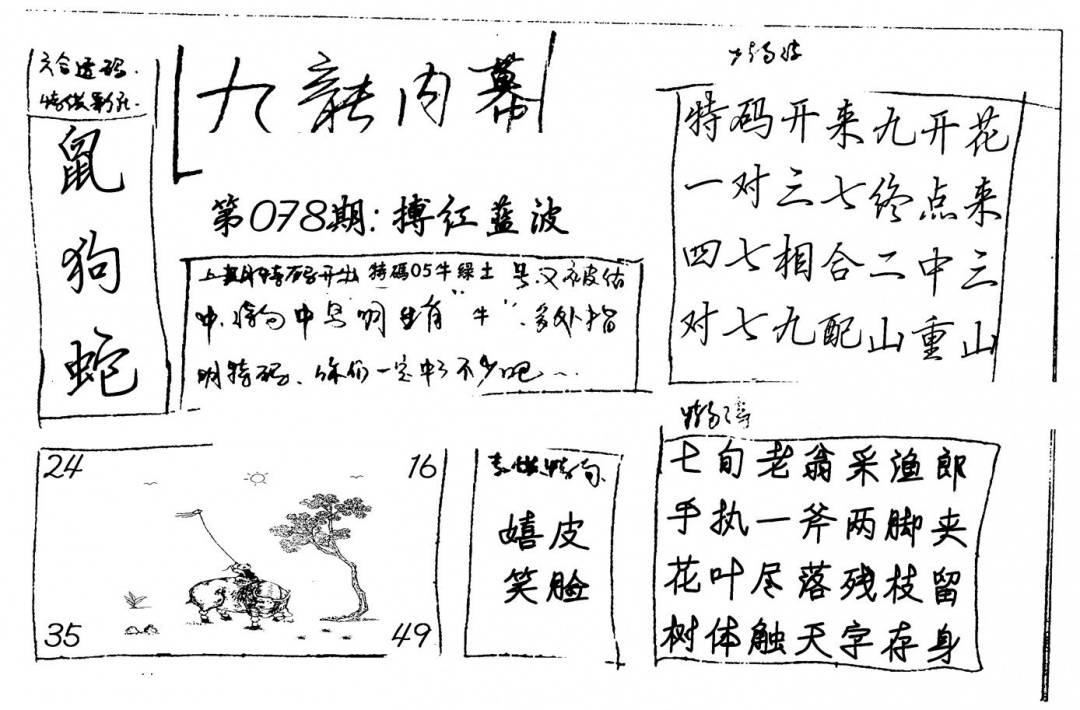 六合透码.
鼠
狗
蛇
九龍内幕
第078期:搏红蓝波
上期特码开出 特碼05牛绿土 号.又被估
中.特肖中号明生肖“牛”.多处指
明特码、你们一定中了不少吧~
特码开来九开花
一对三七终点来
四七相合二中三
对七九配山重山
24
16
35
49
嬉皮
笑脸
七旬老翁采渔郎
手执一斧两脚夹
花叶尽落残枝留
树体触天字存身